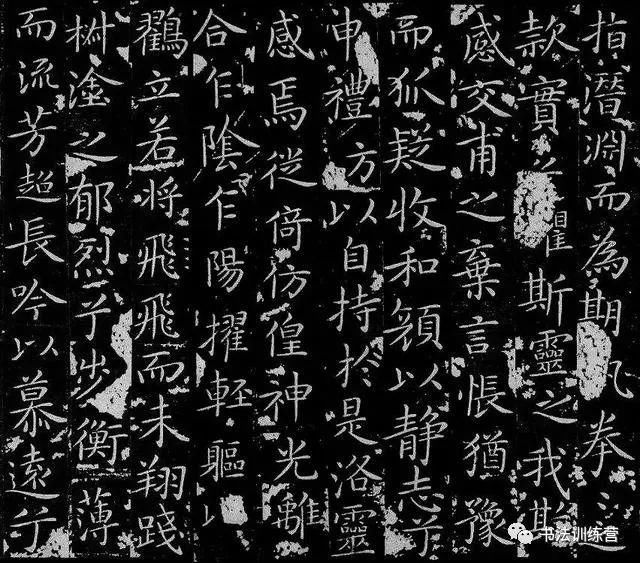 指潛淵而為期執拳〻之
款實兮懼斯靈之我欺
感交甫之棄言悵猶豫
而狐疑收和顔以静志兮
申禮方以自持於是洛靈
感焉徙倚彷徨神光離
合乍陰乍陽擢軽軀以
鶴立若将飛飛而未翔踐
椒塗之郁烈兮步衡薄
而流芳超長吟以慕遠兮
书法训练营